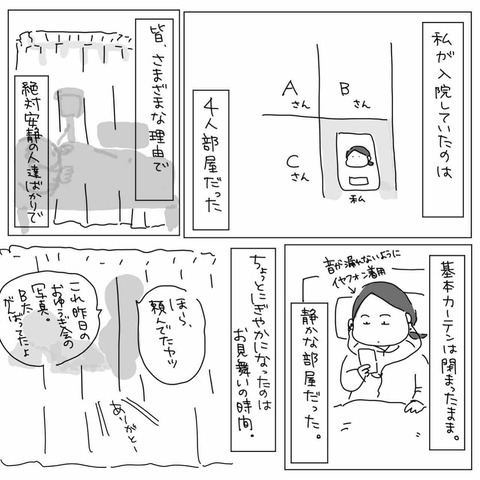 私が入院していたのは
Aさん
Bさん
Cさん
私
4人部屋だった
皆、さまざまな理由で
絶対安静の人達ばかりで
基本カーテンは閉まったまま。
音が漏れないように
イヤフォン着用
静かな部屋だった。
ちょっとにぎやかになったのは
お見舞いの時間。
ほら、
頼んでたヤツ
ありがとー
これ昨日の
おゆうぎ会の
写真。
Bた
がんばってたよ